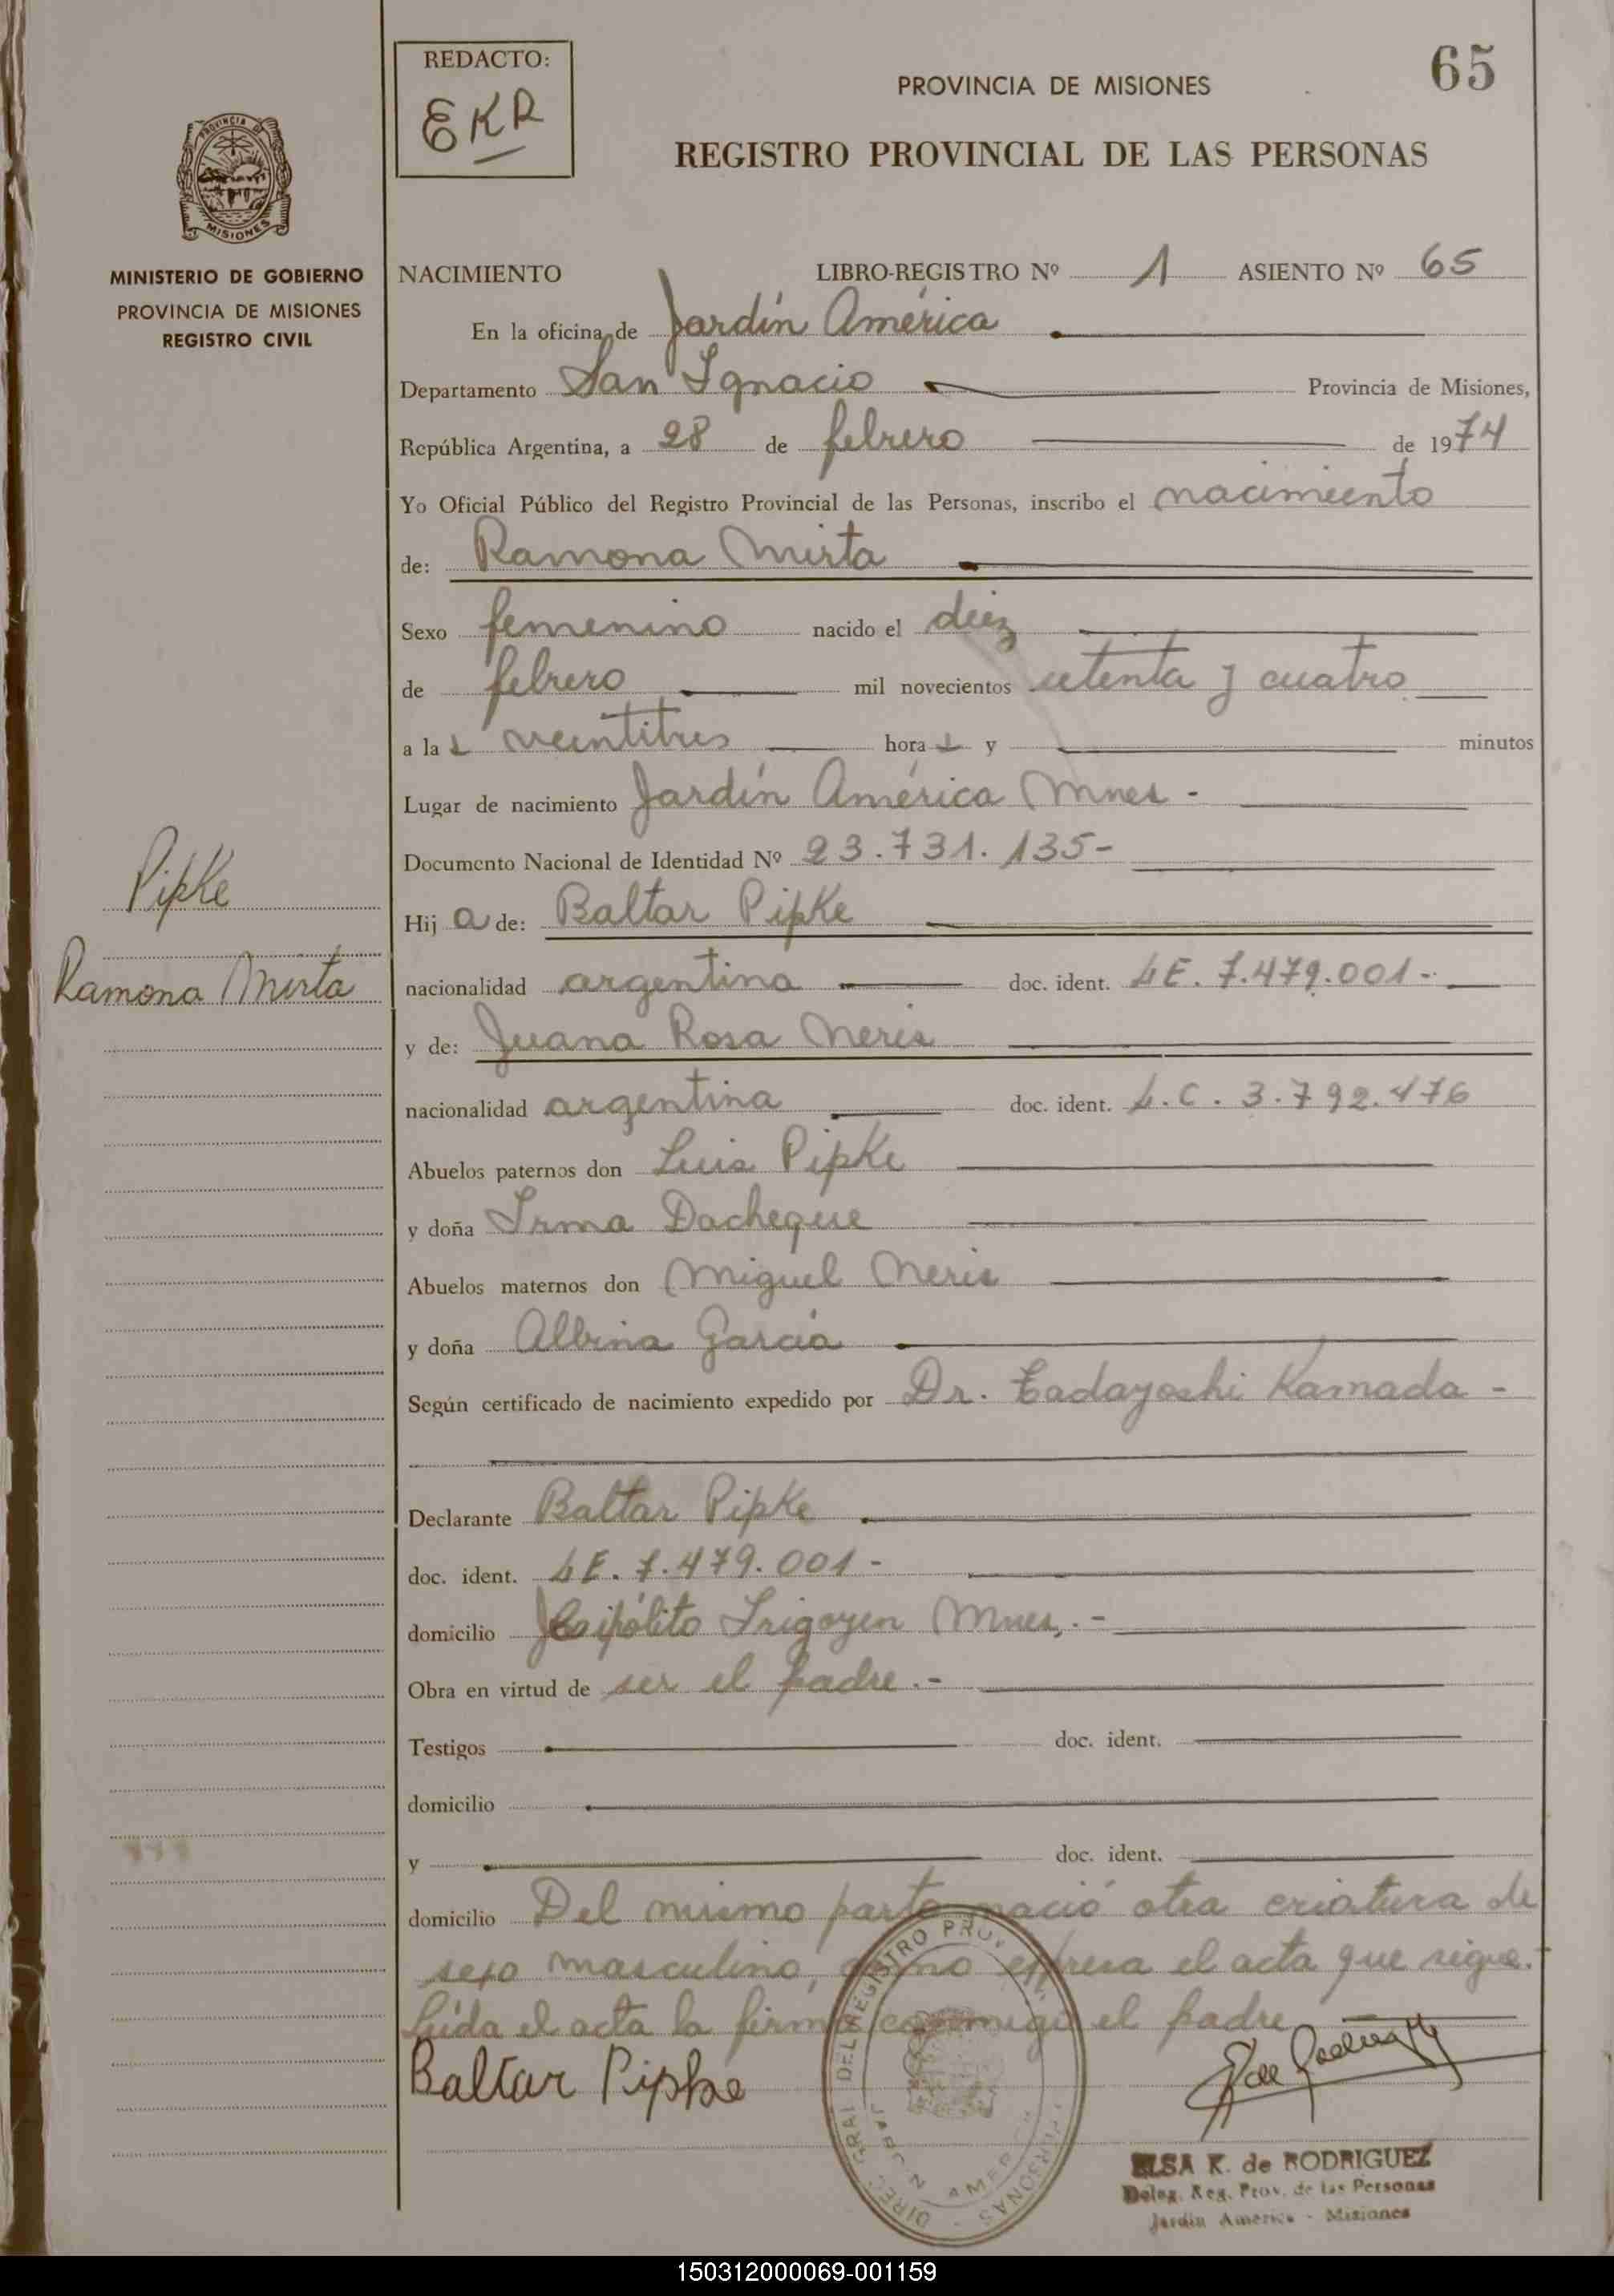 65
REDACTO:
EKR
PROVINCIA DE MISIONES
REGISTRO PROVINCIAL DE LAS PERSONAS
PROVINCIA DE
MISIONES
MINISTERIO DE GOBIERNO
PROVINCIA DE MISIONES
REGISTRO CIVIL
NACIMIENTO LIBRO-REGISTRO Nº 1 ASIENTO Nº 65
En la oficina de Jardín América
Departamento San Ignacio Provincia de Misiones,
República Argentina, a 28 de febrero de 1974
Yo Oficial Público del Registro Provincial de las Personas, inscribo el nacimiento
de: Ramona Mirta
Sexo femenino nacido el diez
de febrero mil novecientos setenta y cuatro
a las veintitres horas y minutos
Lugar de nacimiento Jardín América Mnes -
Documento Nacional de Identidad Nº 23.731.135-
Pipke
Hija de: Baltar Pipke
Ramona Mirta
nacionalidad argentina doc. ident. LE. 7.479.001-
y de: Juana Rosa Neris
nacionalidad argentina doc. ident. L.C. 3.792.476
Abuelos paternos don Luis Pipke
y doña Irma Dacheque
Abuelos maternos don Miguel Neris
y doña Albina García
Según certificado de nacimiento expedido por Dr. Tadayoshi Kamada -
Declarante Baltar Pipke
doc. ident. LE. 7.479.001-
domicilio Hipólito Irigoyen Mnes. -
Obra en virtud de ser el padre. -
Testigos doc. ident.
domicilio
y doc. ident.
domicilio Del mismo parto nació otra criatura de
sexo masculino, como expresa el acta que sigue.-
Leída el acta la firma conmigo el padre
Baltar Pipke
ELSA K. de RODRIGUEZ
Deleg. Reg. Prov. de las Personas
Jardín América - Misiones
150312000069-001159